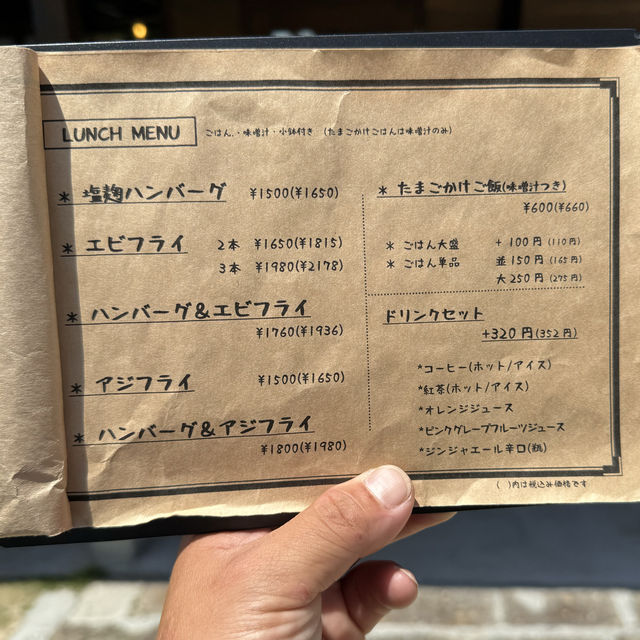 LUNCH MENU ごはん・味噌汁・小鉢付き (たまごかけごはんは味噌汁のみ)
* 塩麹ハンバーグ ¥1500(¥1650)
* エビフライ 2本 ¥1650(¥1815)
3本 ¥1980(¥2178)
* ハンバーグ&エビフライ
¥1760(¥1936)
* アジフライ ¥1500(¥1650)
* ハンバーグ&アジフライ
¥1800(¥1980)
* たまごかけご飯(味噌汁つき)
¥600(¥660)
* ごはん大盛 +100円(110円)
* ごはん単品 並150円(165円)
大250円(275円)
ドリンクセット
+320円(352円)
*コーヒー(ホット/アイス)
*紅茶(ホット/アイス)
*オレンジジュース
*ピンクグレープフルーツジュース
*ジンジャエール辛口(瓶)
( )内は税込み価格です